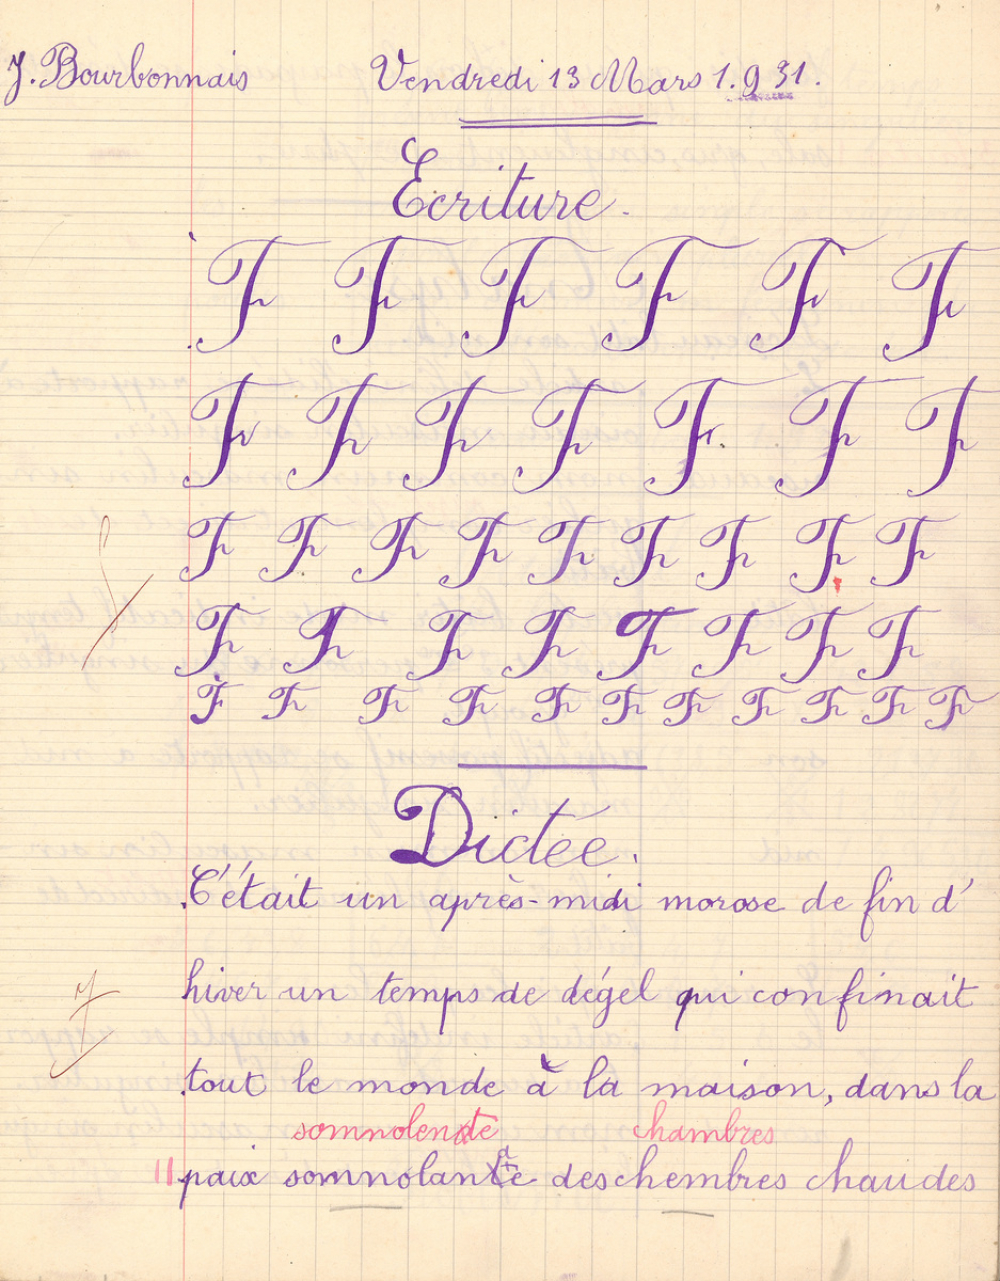 J. Bourbonnais Vendredi 13 Mars 1.931.
Ecriture.
F F F F F F
F F F F F F F
F F F F F F F F F
F F F F F F F F
F F F F F F F F F F F
Dictée.
C'était un après-midi morose de fin d'
hiver un temps de dégel qui confinait
tout le monde à la maison, dans la
somnolente chambres
paix somnolante des chembres chaudes